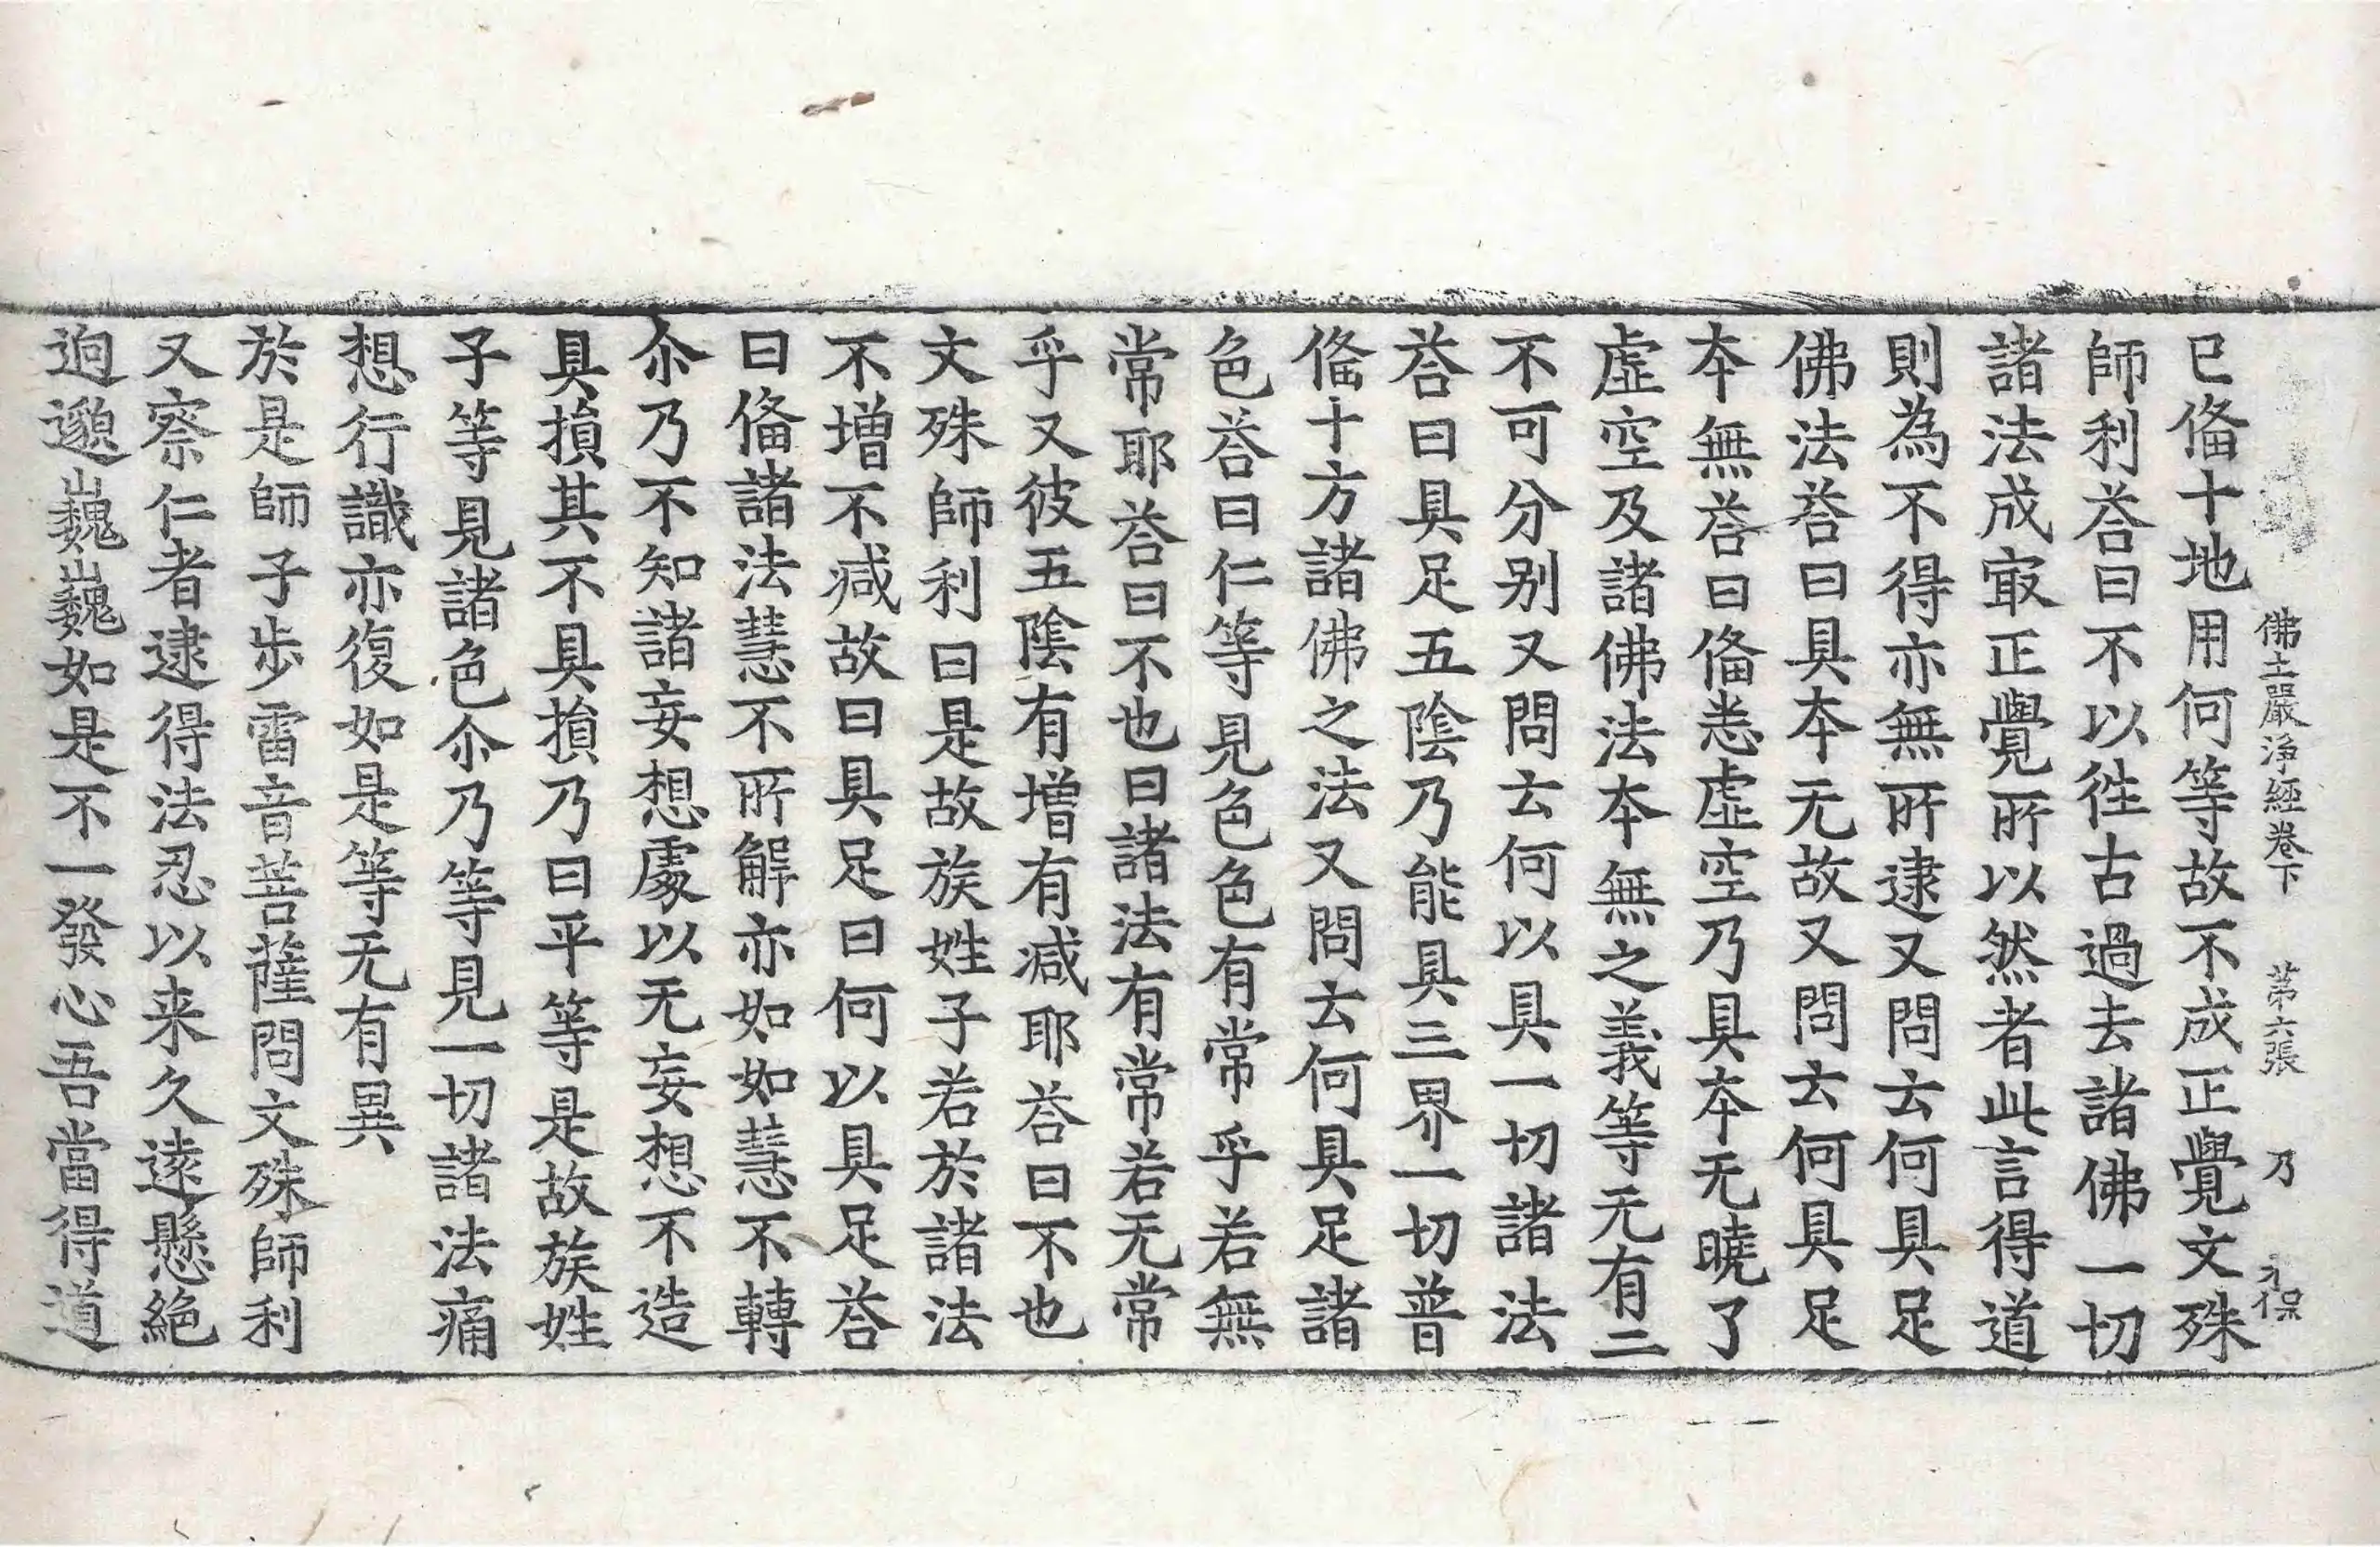 佛土嚴淨經卷下 苐六張 乃 永保
已俻十地用何等故不成正覺文殊
師利荅曰不以徃古過去諸佛一切
諸法成㝡正覺所以然者此言得道
則為不得亦無所逮又問云何具足
佛法荅曰具夲无故又問云何具足
夲無荅曰俻悉虛空乃具夲无曉了
虛空及諸佛法夲無之義等无有二
不可分别又問云何以具一切諸法
荅曰具足五陰乃能具三界一切普
俻十方諸佛之法又問云何具足諸
色荅曰仁等見色色有常乎若無
常耶荅曰不也曰諸法有常若无常
乎又彼五陰有增有减耶荅曰不也
文殊師利曰是故族姓子若於諸法
不增不减故曰具足曰何以具足荅
曰俻諸法慧不所解亦如如慧不轉
尒乃不知諸妄想處以无妄想不造
具損其不具損乃曰平等是故族姓
子等見諸色尒乃等見一切諸法痛
想行識亦復如是等无有異
於是師子步雷音菩薩問文殊師利
又察仁者逮得法忍以来久遠懸絶
逈邈巍巍如是不一發心吾當得道